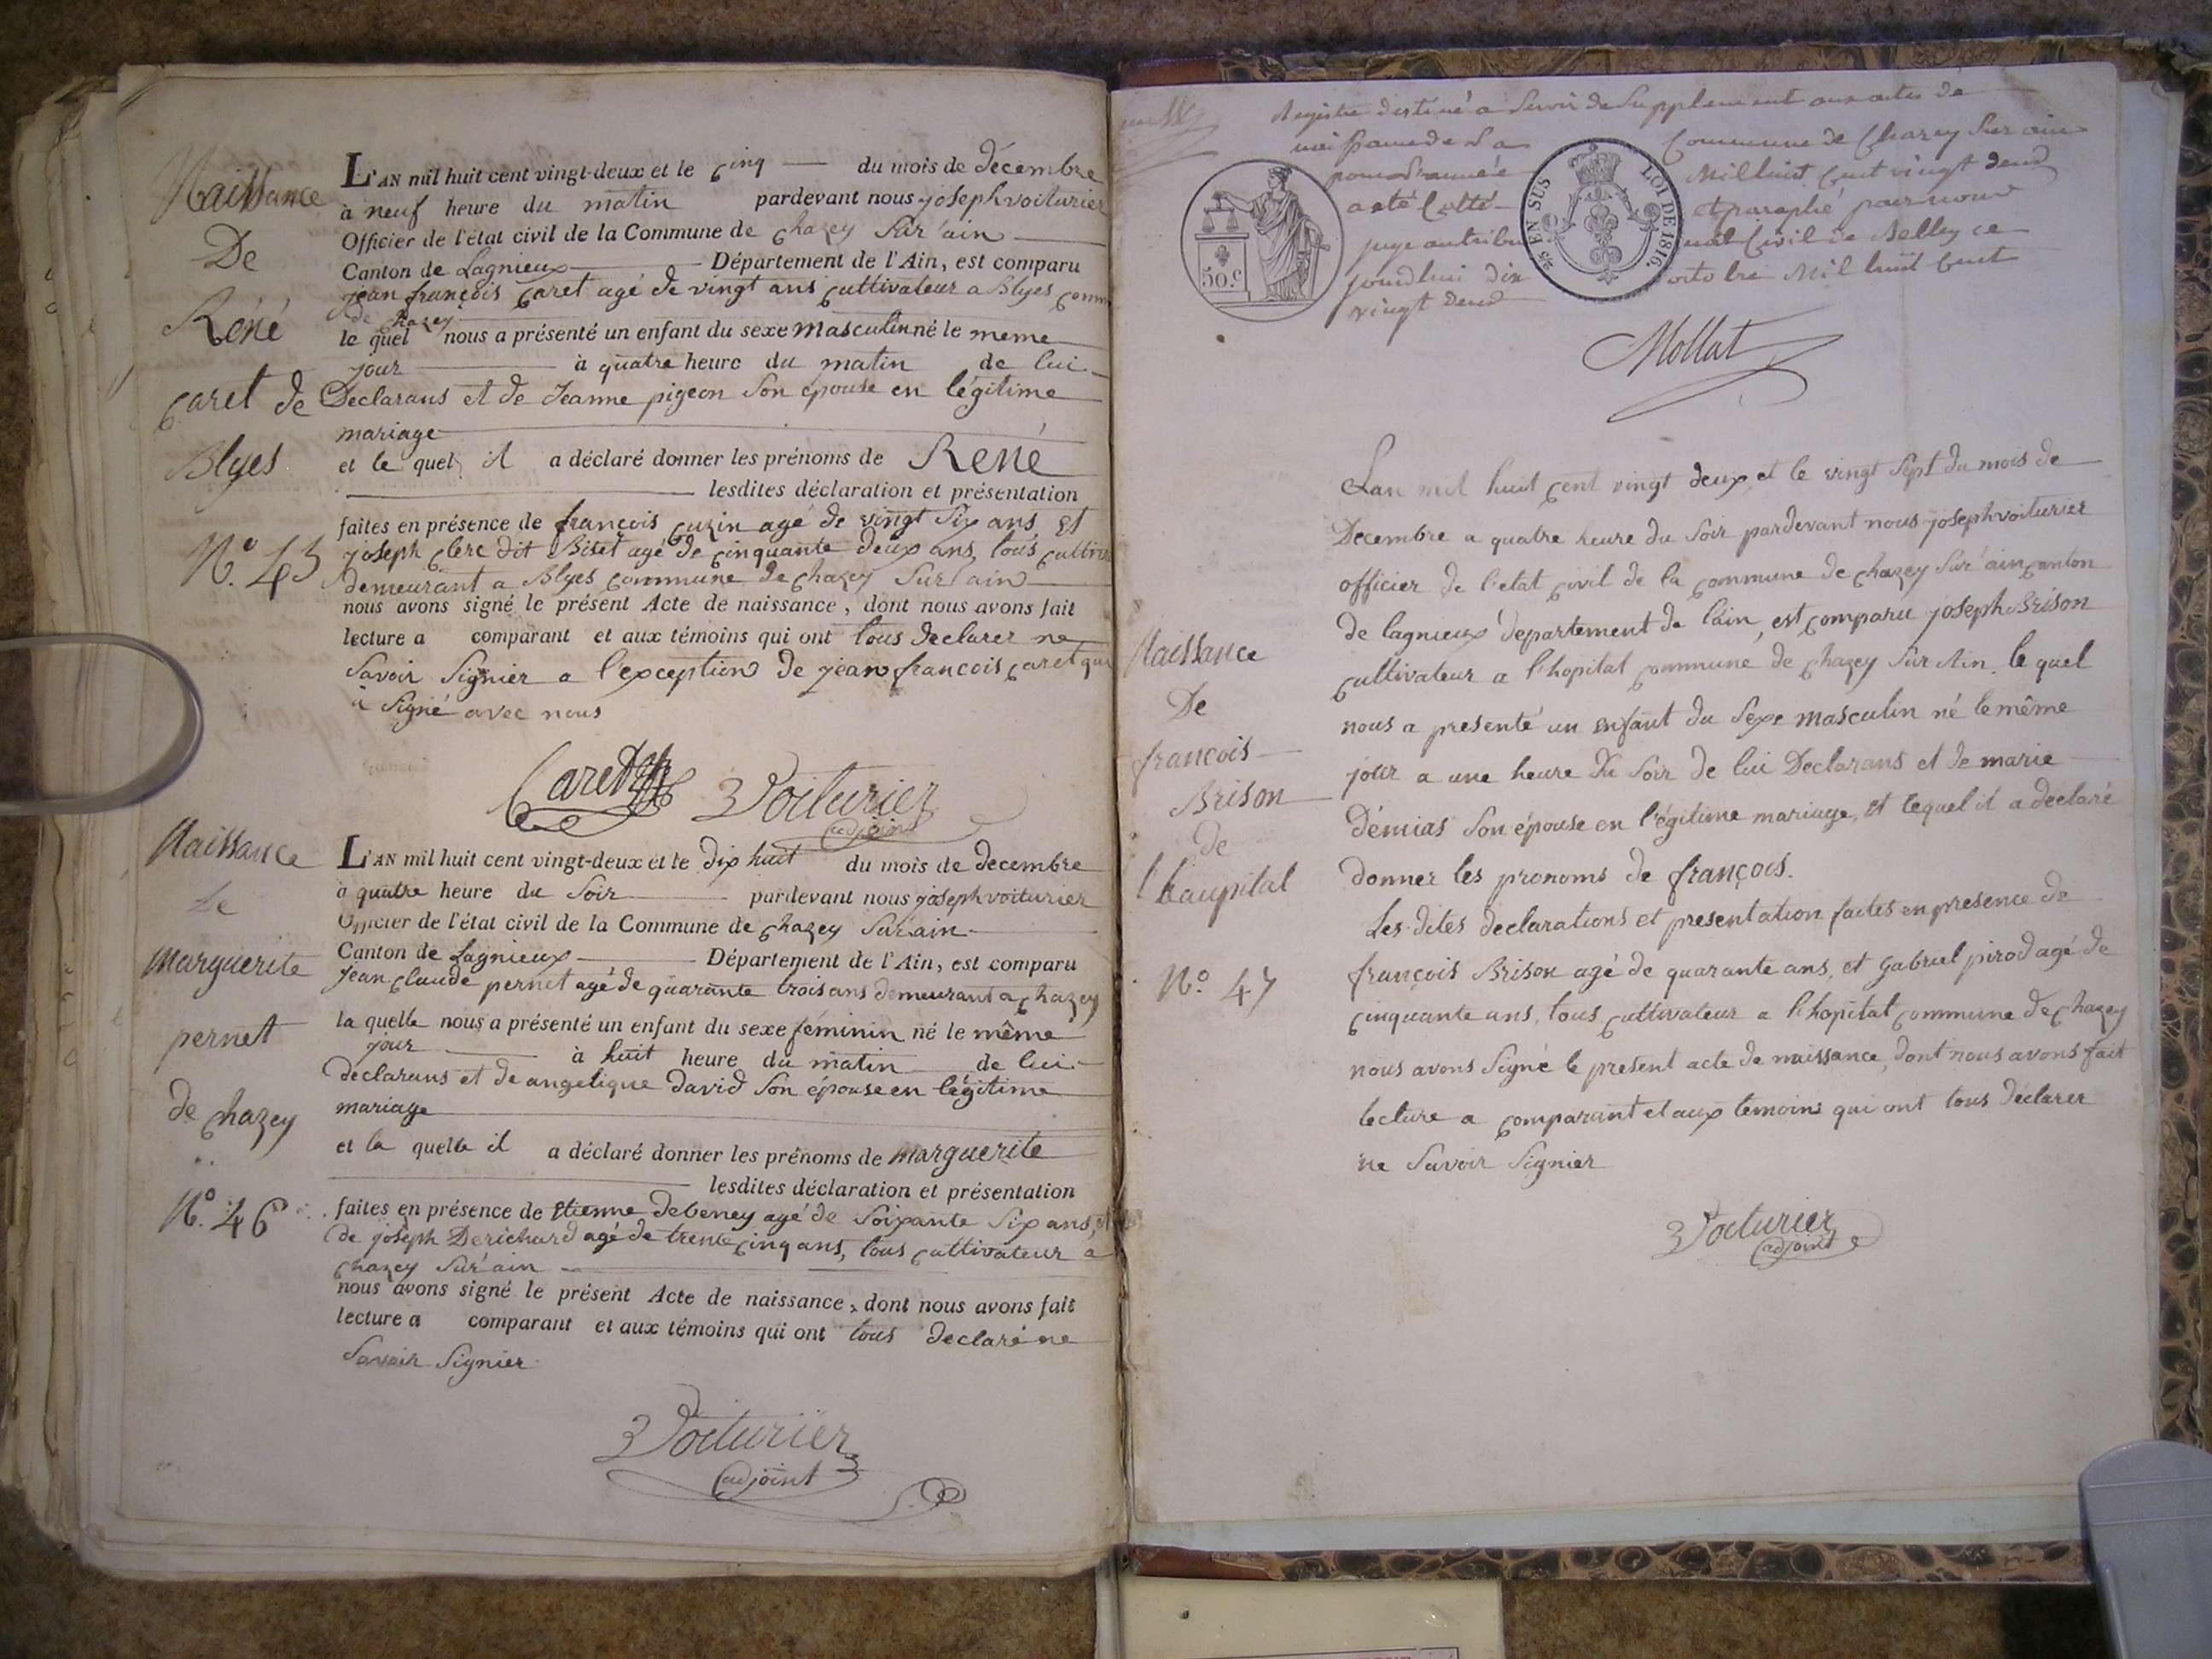 Naissance
De
René
Caret de
Blyes
N.° 45
L'AN mil huit cent vingt-deux et le cinq du mois de décembre
à neuf heure du matin pardevant nous joseph voiturier
Officier de l'état civil de la Commune de chazey sur ain
Canton de Lagnieux Département de l'Ain, est comparu
jean françois Caret agé de vingt ans cultivateur a Blyes comm
de chazey
le quel nous a présenté un enfant du sexe Masculin né le meme
jour à quatre heure du matin de lui
Declarans et de Jeanne pigeon son épouse en légitime
mariage
et le quel il a déclaré donner les prénoms de René
lesdites déclaration et présentation
faites en présence de françois cuzin agé de vingt six ans et
joseph clerc dit Biset agé de cinquante deux ans, tous cultiv
demeurant a Blyes commune de chazey sur ain
nous avons signé le présent Acte de naissance, dont nous avons fait
lecture a comparant et aux témoins qui ont tous declarer ne
savoir signier a l'exception de jean francois caret qui
à signé avec nous
Caret Voiturier
adjoint
Naissance
de
marguerite
pernet
de chazey
N.° 46
L'AN mil huit cent vingt-deux et le dix huit du mois de decembre
à quatre heure du soir pardevant nous joseph voiturier
Officier de l'état civil de la Commune de chazey sur ain
Canton de Lagnieux Département de l'Ain, est comparu
jean claude pernet agé de quarante trois ans demeurant a chazey
la quelle nous a présenté un enfant du sexe féminin né le même
jour à huit heure du matin de lui
déclarans et de angelique david son épouse en légitime
mariage
et la quelle il a déclaré donner les prénoms de marguerite
lesdites déclaration et présentation
faites en présence de Etienne debeney agé de soixante six ans, et
de joseph Derichard agé de trente cinq ans, tous cultivateur a
chazey sur ain
nous avons signé le présent Acte de naissance, dont nous avons fait
lecture a comparant et aux témoins qui ont tous declaré ne
savoir signier
Voiturier
adjoint
Registre destiné a servir de supplement aux actes de
naissance de la Commune de Chazey sur ain
pour l'année Mil huit cent vingt deux
a été cotté et paraphé par nous
juge au tribunal civil de Belley ce
jourdhui dix octobre Mil huit cent
vingt deux
50.c
25 EN SUS
LOI DE 1816.
Mollat
Naissance
De
françois
Brison
de
l'haupital
N.° 47
Lan mil huit cent vingt deux, et le vingt sept du mois de
Decembre a quatre heure du soir pardevant nous joseph voiturier
officier de l'etat civil de la commune de chazey sur ain canton
de lagnieux departement de l'ain, est comparu joseph Brison
cultivateur a l'hopital commune de chazey sur Ain le quel
nous a presenté un enfant du sexe masculin né le même
jour a une heure du soir de lui Declarans et de marie
démias son épouse en légitime mariage, et lequel il a declaré
donner les pronoms de françois.
Les dites declarations et presentation faites en presence de
françois Brison agé de quarante ans, et gabriel pirod agé de
cinquante ans, tous cultivateur a l'hopital commune de chazey
nous avons signé le present acte de naissance, dont nous avons fait
lecture a comparant et aux temoins qui ont tous déclarer
ne savoir signier
Voiturier
adjoint